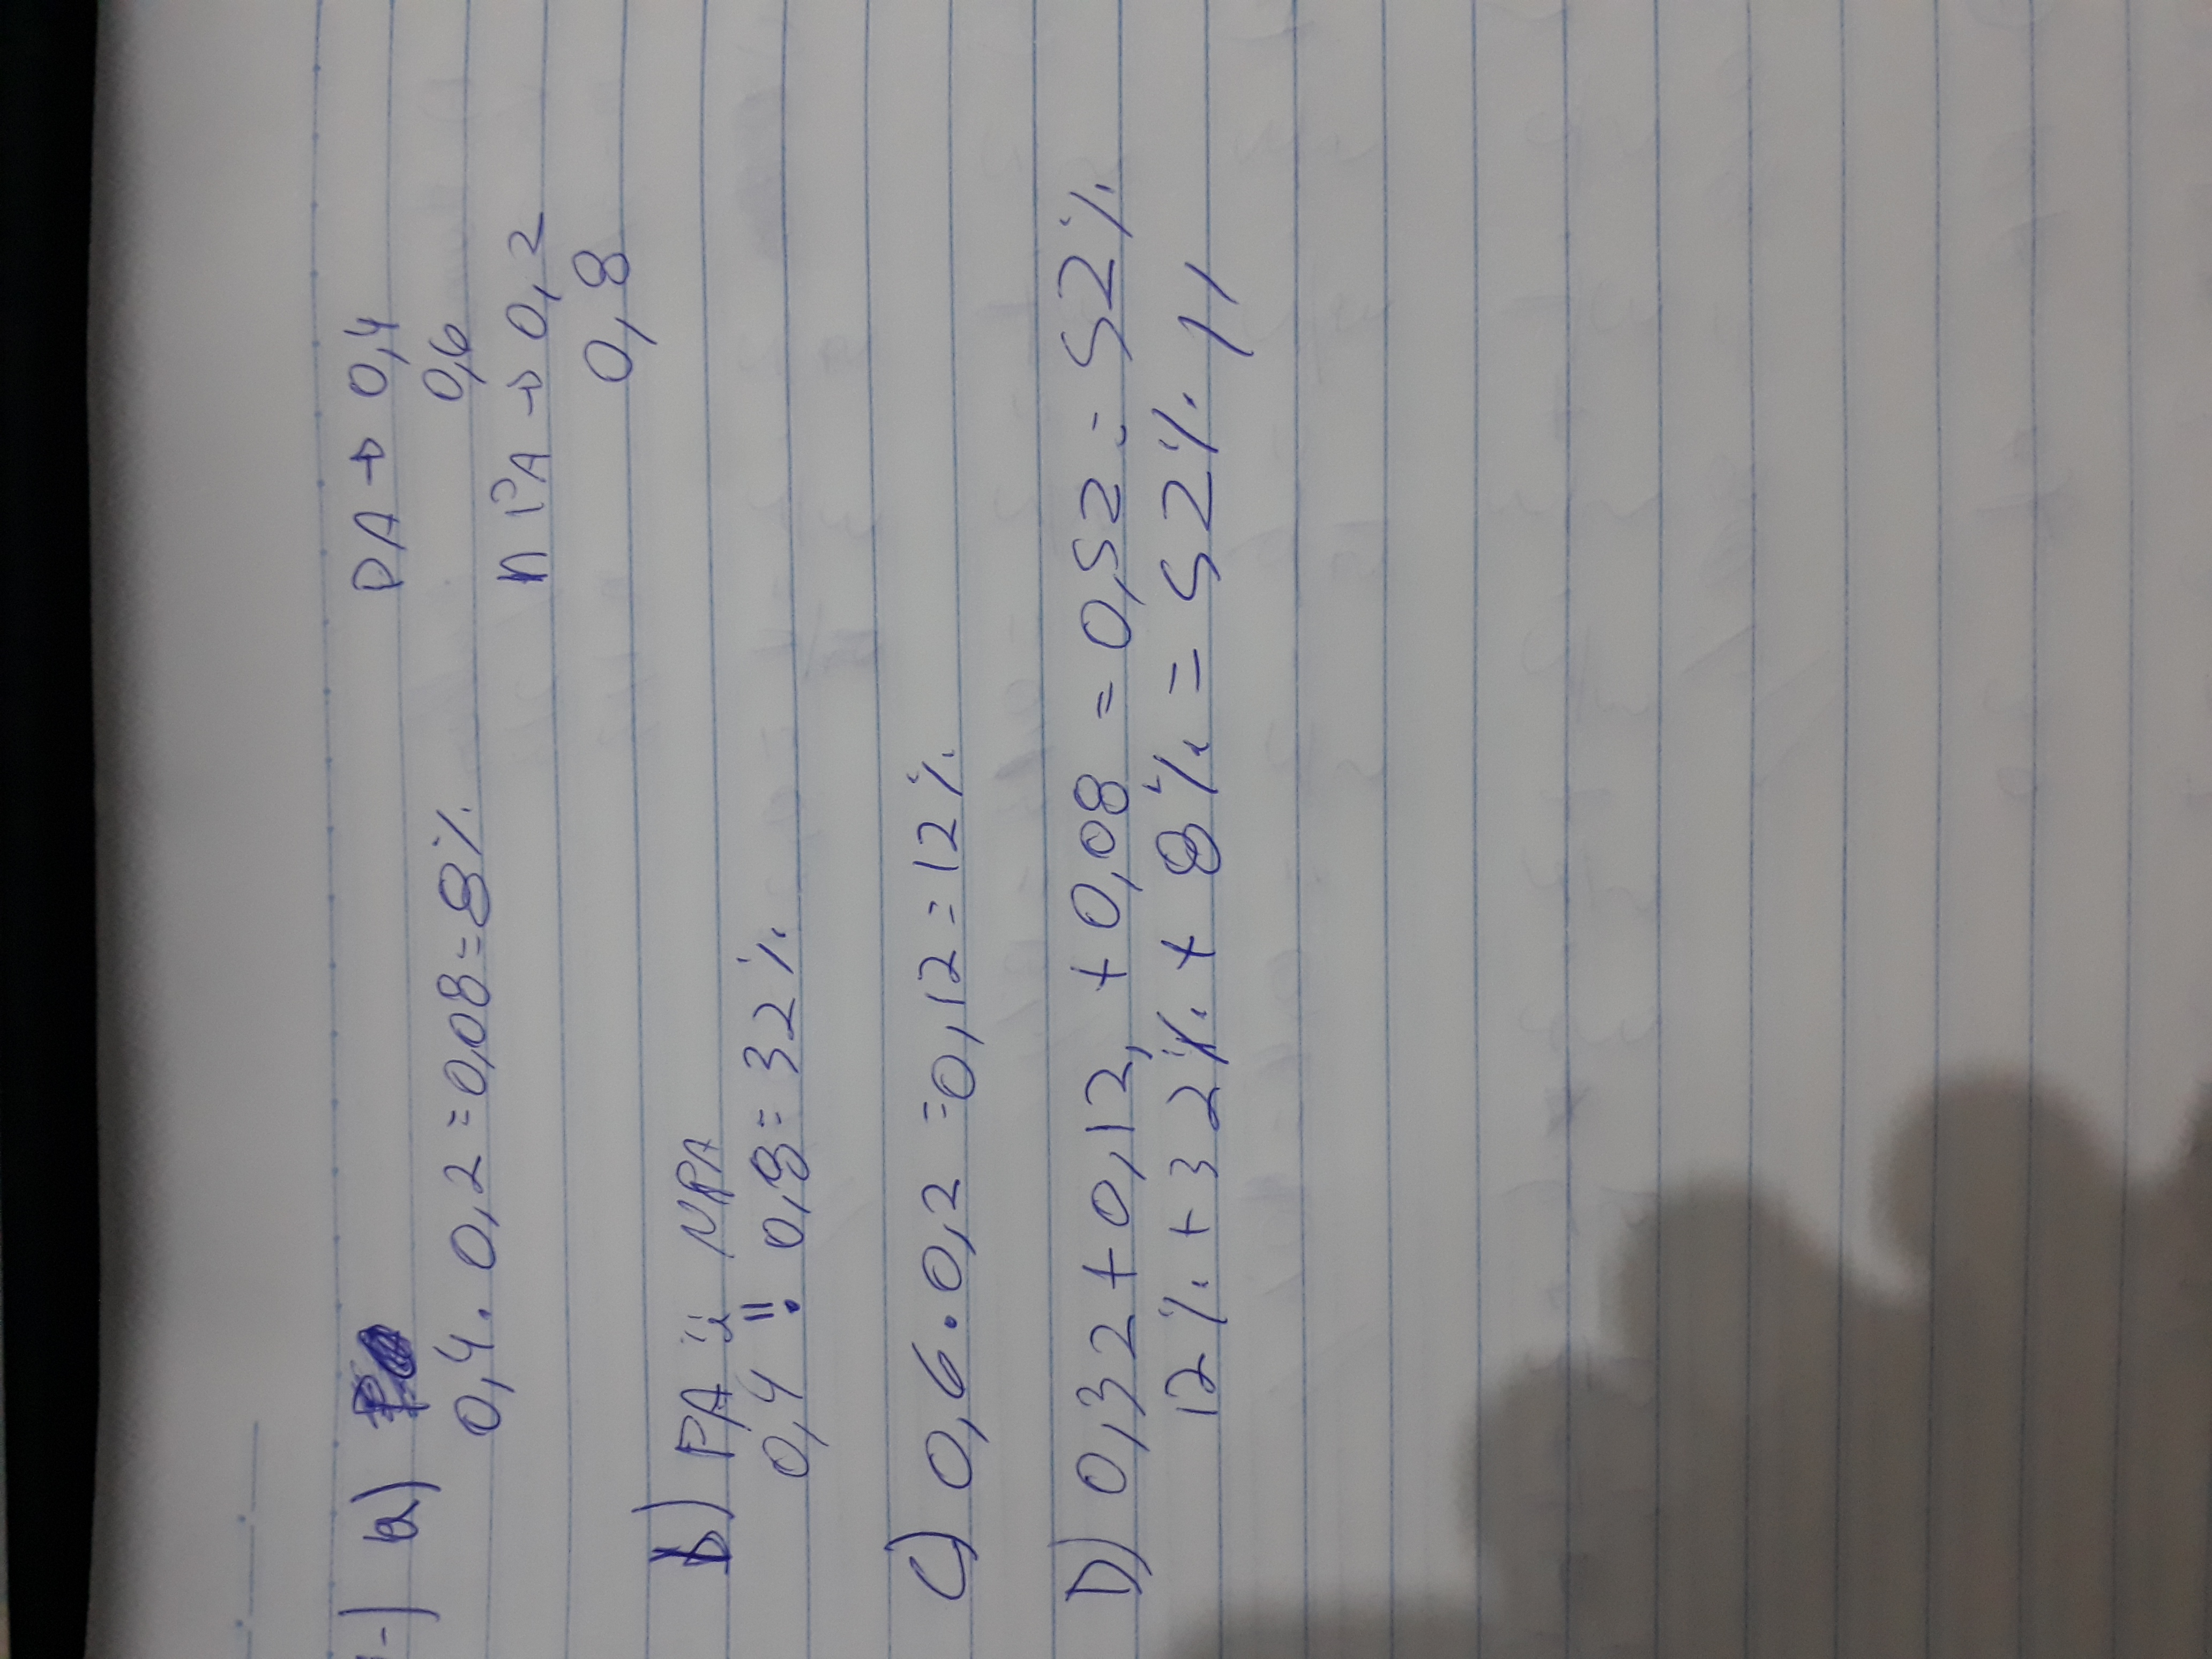 -) a)
PA → 0,4
0,4 . 0,2 = 0,08 = 8%
0,6
NPA → 0,2
0,8
b) PA NPA
0,4 . 0,8 = 32%
C) 0,6 . 0,2 = 0,12 = 12%
D) 0,32 + 0,12, + 0,08 = 0,52 = 52%
12% + 32% + 8% = 52% //